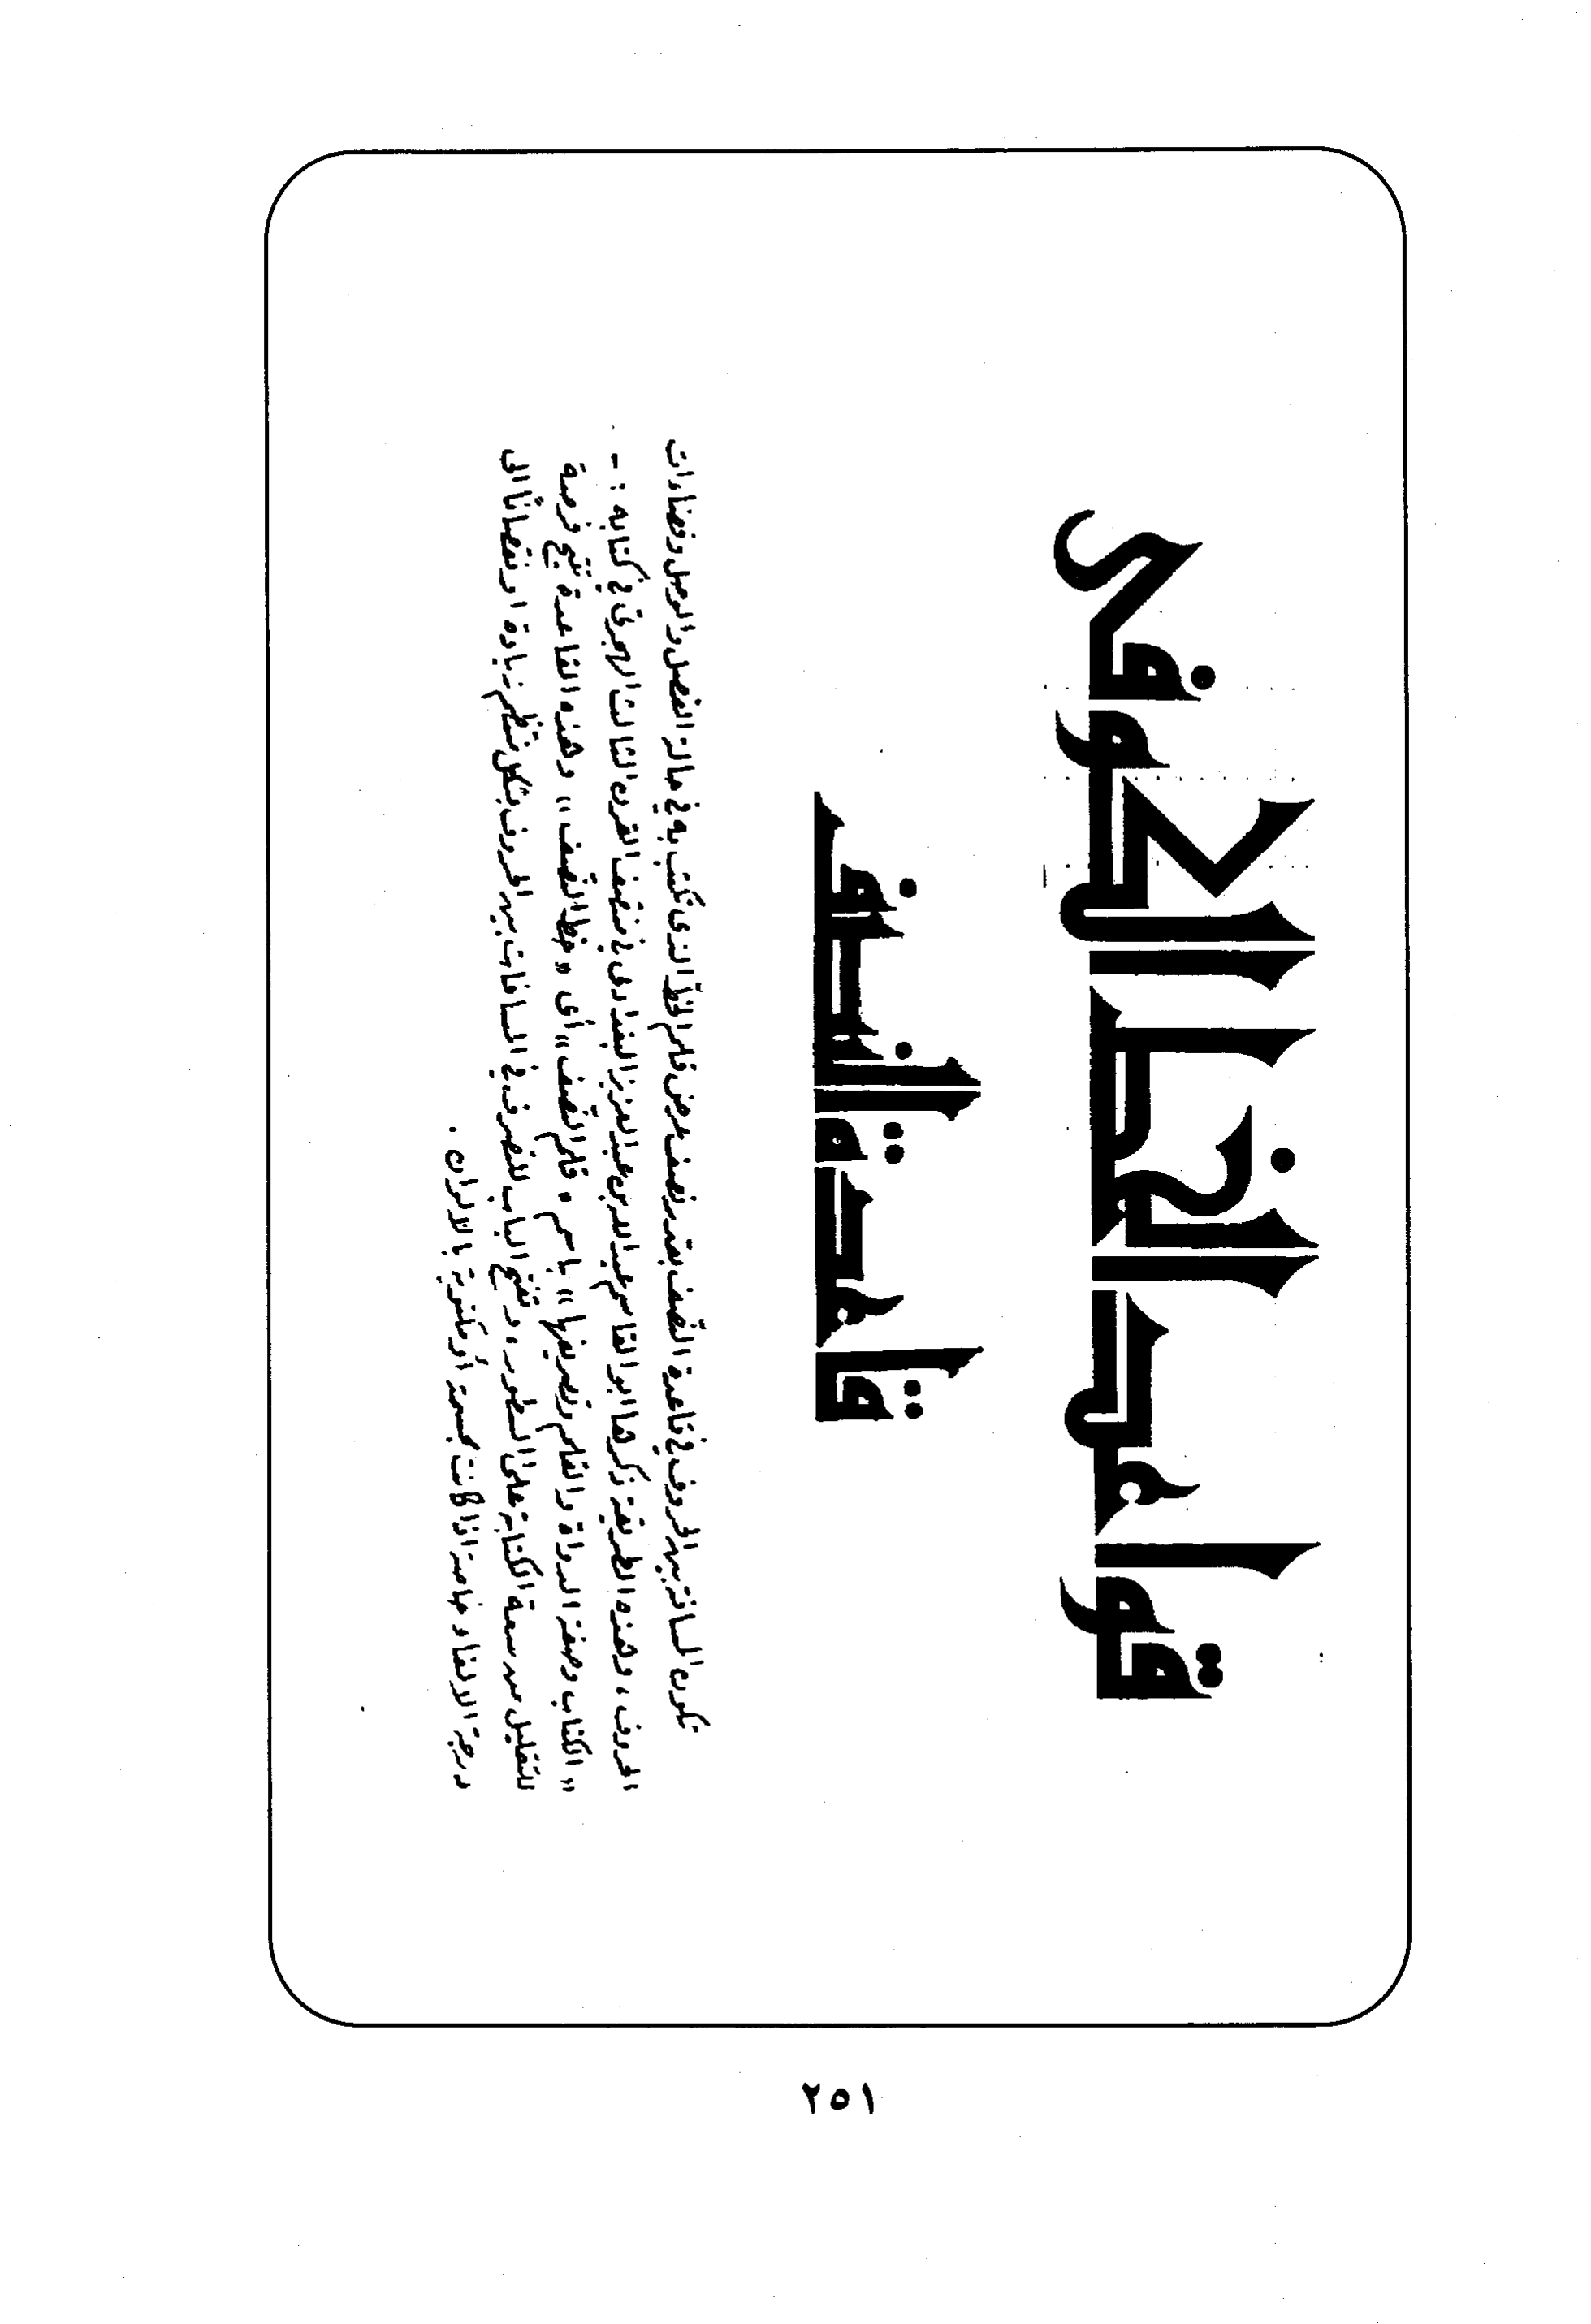 قواعد الخط الكوفي
قاعدة النصف
تكون المسافة بين الحروف في قاعدة النصف بقدر نصف عرض قلم الخط الذى تكتب به في حالة الفصل والوصل وفضاءات
الحروف ، وهذه الطريقة ذكرها ابو القاسم عبدالله بن عبدالعزيز البغدادى في منتصف القرن الثالث الهجرى في كتابه : -
« الكتاب وصفة الدواة والقلم وتصريفها » باسم « قلم النصف » أى « خط النصف » وهذه القاعدة تتيح فرصة
للتقليل من سعة الكتابة على السطور ، وتفتح الباب للتصرف في المسافات بين الحروف بشكل منتظم زيادة او نقصاناً الى
درجة الالغاء خاصة اذا كانت مجسمة أو مكتوبة بالالوان .
٢٥١